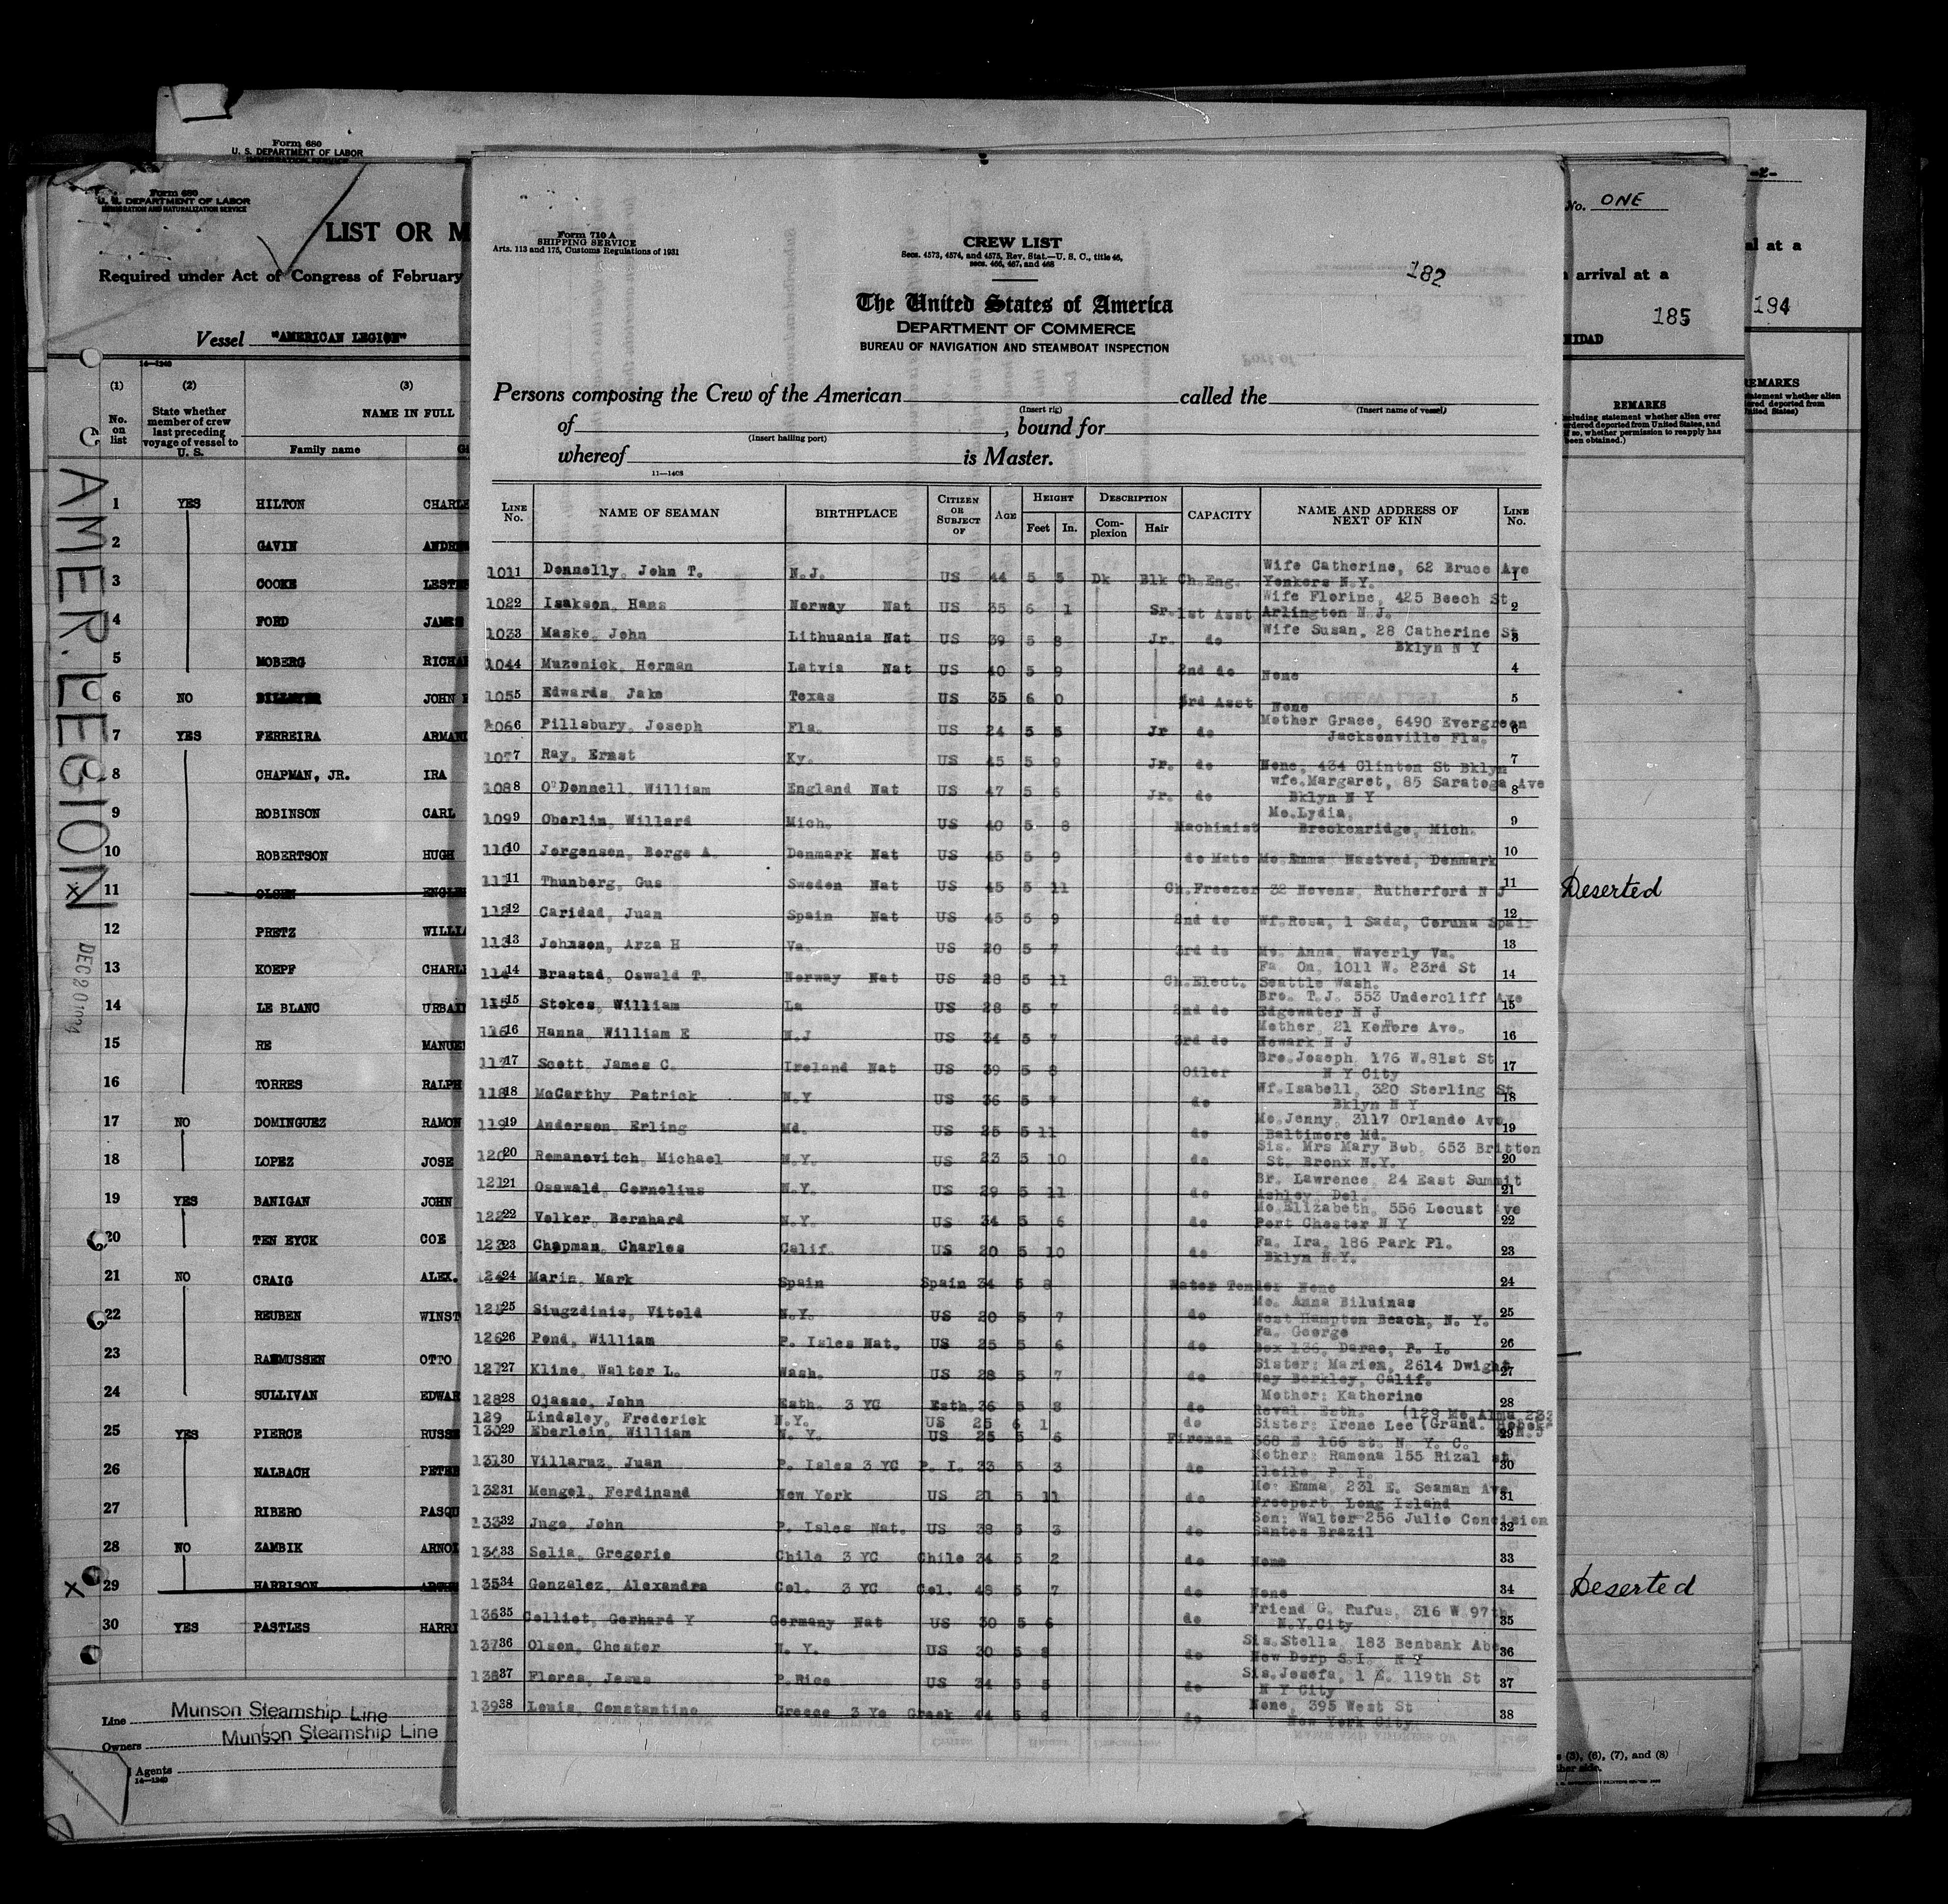 Form 680
U. S. DEPARTMENT OF LABOR
IMMIGRATION SERVICE
Form 680
U. S. DEPARTMENT OF LABOR
IMMIGRATION AND NATURALIZATION SERVICE
LIST OR M
Required under Act of Congress of February
Vessel "AMERICAN LEGION"
14—1240
(1) (2) (3)
No. on list
State whether member of crew last preceding voyage of vessel to U. S.
NAME IN FULL
Family name
AMER. LEGION
DEC 20 1934
1 YES HILTON CHARL
2 GAVIN ANDRE
3 COOKE LESTE
4 FORD JAMES
5 MOBERG RICHA
6 NO JOHN
7 YES FERREIRA ARMAN
8 CHAPMAN, JR. IRA
9 ROBINSON CARL
10 ROBERTSON HUGH
X 11 OLSEN ENGLE
12 PRETZ WILLI
13 KOEPF CHARL
14 LE BLANC URBAI
15 RE MANUE
16 TORRES RALPH
17 NO DOMINGUEZ RAMON
18 LOPEZ JOSE
19 YES BANIGAN JOHN
20 TEN EYCK COE
21 NO CRAIG ALEX.
22 REUBEN WINST
23 RASMUSSEN OTTO
24 SULLIVAN EDWAR
25 YES PIERCE RUSSE
26 NALBACH PETER
27 RIBERO PASQU
28 NO ZAMBIK ARNOL
X 29 HARRISON
30 YES PASTLES HARRI
Line Munson Steamship Line
Owners Munson Steamship Line
Agents
14—1240
Form 710 A
SHIPPING SERVICE
Arts. 113 and 175, Customs Regulations of 1931
CREW LIST
Secs. 4573, 4574, and 4575, Rev. Stat.—U. S. C., title 46,
secs. 466, 467, and 468
182
The United States of America
DEPARTMENT OF COMMERCE
BUREAU OF NAVIGATION AND STEAMBOAT INSPECTION
Persons composing the Crew of the American called the
(Insert rig) (Insert name of vessel)
of , bound for
(Insert hailing port)
whereof is Master.
11—1408
LINE No. NAME OF SEAMAN BIRTHPLACE CITIZEN OR SUBJECT OF AGE HEIGHT Feet In. DESCRIPTION Complexion Hair CAPACITY NAME AND ADDRESS OF NEXT OF KIN LINE No.
101 1 Donnelly, John T. N.J. US 44 5 5 Dk Blk Ch.Eng. Wife Catherine, 62 Bruce Ave Yonkers N.Y. 1
102 2 Isaksen, Hans Norway Nat US 35 6 1 Sr. 1st Asst Wife Florine, 425 Beech St Arlington N J. 2
103 3 Maske, John Lithuania Nat US 39 5 8 Jr. do Wife Susan, 28 Catherine St Bklyn N Y 3
104 4 Muzenick, Herman Latvia Nat US 40 5 9 2nd do None 4
105 5 Edwards, Jake Texas US 35 6 0 3rd Asst None 5
106 6 Pillsbury, Joseph Fla. US 24 5 5 Jr do Mother Grace, 6490 Evergreen Jacksonville Fla. 6
107 7 Ray, Ernst Ky. US 45 5 9 Jr. do None, 434 Clinton St Bklyn 7
108 8 O'Donnell, William England Nat US 47 5 6 Jr. do wfe.Margaret, 85 Saratoga Ave Bklyn N Y 8
109 9 Oberlin, Willard Mich. US 40 5 8 Machinist Mo.Lydia, Breckenridge, Mich. 9
110 10 Jorgensen, Borge A. Denmark Nat US 45 5 9 do Mate Mo.Emma, Nastved, Denmark 10
111 11 Thunberg, Gus Sweden Nat US 45 5 11 Ch.Freezer 32 Nevens, Rutherford N J 11
112 12 Caridad, Juan Spain Nat US 45 5 9 2nd do Wf.Rosa, 1 Sada, Coruna Spain 12
113 13 Johnson, Arza H Va. US 20 5 7 3rd do Mo. Anna, Waverly Va. 13
114 14 Brastad, Oswald T. Norway Nat US 28 5 11 Ch.Elect. Fa. Om, 1011 W. 83rd St Seattle Wash. 14
115 15 Stokes, William La US 28 5 7 2nd do Bro. T.J. 553 Undercliff Ave Edgewater N J 15
116 16 Hanna, William E N.J US 34 5 7 3rd do Mother, 21 Kenmore Ave. Newark N J 16
117 17 Scott, James C. Ireland Nat US 39 5 8 Oiler Bro.Joseph, 176 W.81st St N Y City 17
118 18 McCarthy, Patrick N.Y US 36 5 do Wf.Isabell, 320 Sterling St Bklyn N Y 18
119 19 Anderson, Erling Md. US 25 5 11 do Mo.Jenny, 3117 Orlando Ave Baltimore Md. 19
120 20 Romanovitch, Michael N.Y. US 23 5 10 do Sis. Mrs Mary Bob, 653 Britton St. Bronx N.Y. 20
121 21 Osswald, Cornelius N.Y. US 29 5 11 do Br. Lawrence, 24 East Summit Ashley, Del. 21
122 22 Volker, Bernhard N.Y. US 34 5 6 do Mo Elizabeth, 556 Locust Ave Port Chester N Y 22
123 23 Chapman, Charles Calif. US 20 5 10 do Fa. Ira, 186 Park Pl. Bklyn N.Y. 23
124 24 Marin, Mark Spain Spain 34 5 8 Water Tender None 24
125 25 Siugzdinis, Vitold N.Y. US 20 5 7 do Mo. Anna Biluinas West Hampton Beach, N. Y. 25
126 26 Pond, William P. Isles Nat. US 25 5 6 do Fa. George Box 136, Darao, P. I. 26
127 27 Kline, Walter L. Wash. US 28 5 7 do Sister: Marion, 2614 Dwight Way Berkley, Calif. 27
128 28 Ojasoo, John Esth. 3 YC Esth. 36 5 8 do Mother: Katherine Reval, Esth. 28
129 Lindsley, Frederick N.Y. US 25 6 1 do (129 Mo.Alma 232 Grand.
130 29 Eberlein, William N. Y. US 25 5 6 Fireman Sister: Irene Lee 568 E 166 st. N. Y. C. 29
131 30 Villaruz, Juan P. Isles 3 YC P. I. 33 5 3 do Mother: Ramona 155 Rizal st. Iloilo, P. I. 30
132 31 Mengel, Ferdinand New York US 21 5 11 do Mo: Emma, 231 E. Seaman Ave Freeport, Long Island 31
133 32 Juge, John P. Isles Nat. US 38 5 3 do Son: Walter 256 Julio Concision Santos Brazil 32
134 33 Solis, Gregorio Chile 3 YC Chile 34 5 2 do None 33
135 34 Gonzalez, Alexandra Col. 3 YC Col. 48 5 7 do None 34
136 35 Colliet, Gerhard Y Germany Nat US 30 5 6 do Friend G. Rufus, 316 W 97th N.Y.City 35
137 36 Olson, Chester N. Y. US 30 5 8 do Sis.Stella, 183 Benbank Abe New Dorp S.I. N Y 36
138 37 Flores, Jesus P.Rico US 34 5 5 do Sis.Josefa, 1 E. 119th St N Y City 37
139 38 Louis, Constantino Greece 3 Yc Greek 44 5 6 do None, 395 West St New York City 38
No. ONE
arrival at a
185
NIDAD
REMARKS
(Including statement whether alien ever
ordered deported from United States, and
if so, whether permission to reapply has
been obtained.)
Deserted
Deserted
(3), (6), (7), and (8)
other side.
-2-
al at a
194
REMARKS
statement whether alien
ordered deported from
United States)